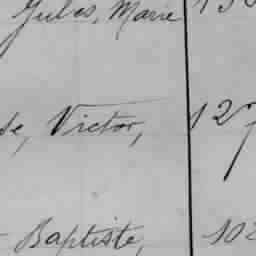 Jules, Marie 13
se, Victor, 127
Baptiste, 102